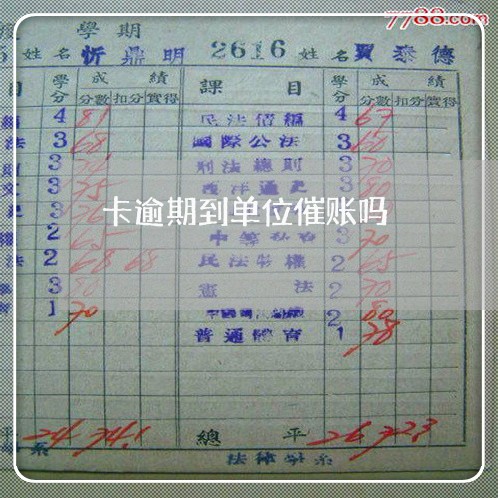 7788.com
學期
姓名 忻鼎明 2616 姓名 賈泰德
目 學分 成績 課目 學分 成績
分數 扣分 實得 分數 扣分 實得
4 81 民法債編 4 67
法 3 68 國際公法 3 60
3 刑法總則 3 70
3 75 西洋通史 3 80
卡逾期到单位催账吗
2 65 3 70
法 2 68 68 民法物權 2 65
3 80 憲法 2 70
1 70 2 80
普通體育 1 78
平 24 74.1 總平 26 72.3
系 法律學系